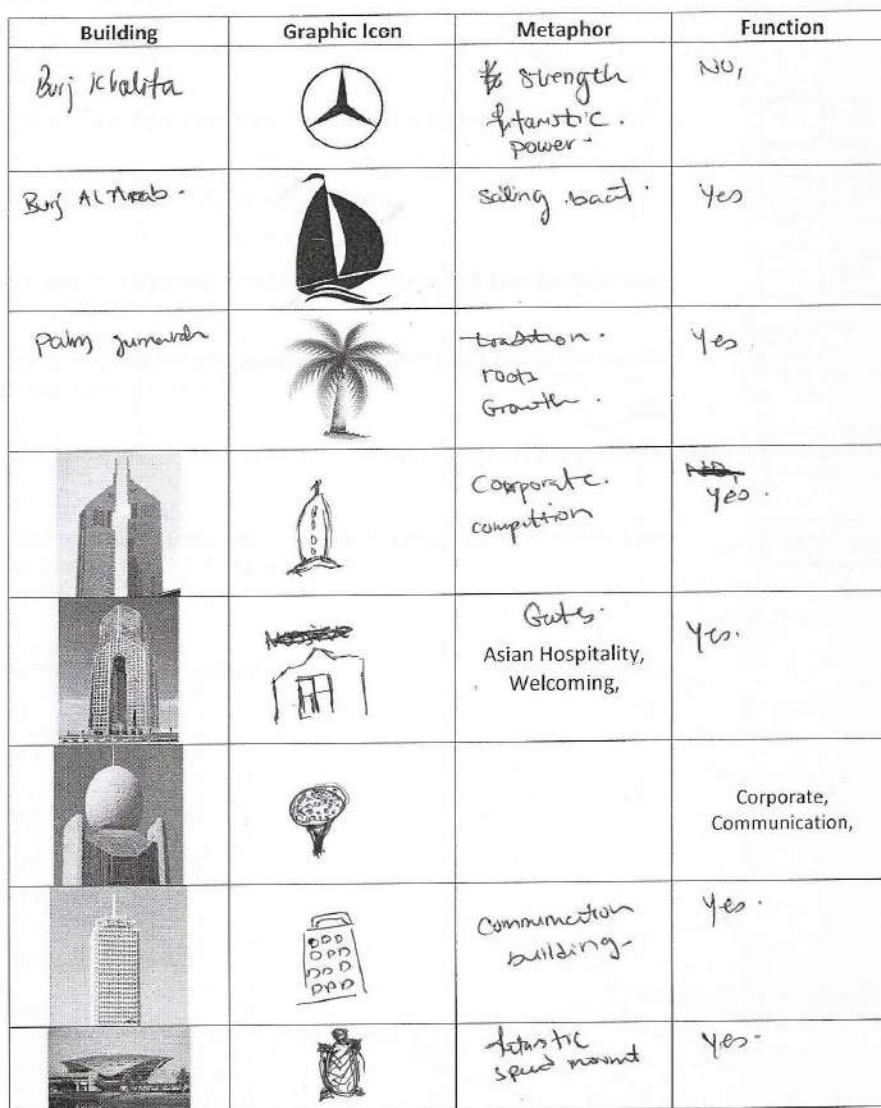 Building Graphic Icon Metaphor Function
Burj Khalifa
strength
futaristic.
power-
NO,
Burj Al Arab.
sailing boat.
Yes
Palm Jumeirah
tradition.
roots
Growth.
Yes.
Corporate.
compition
Yes.
Gates.
Asian Hospitality,
Welcoming,
Yes.
Corporate,
Communication,
Communication
building-
Yes.
futuristic
speed
Yes-